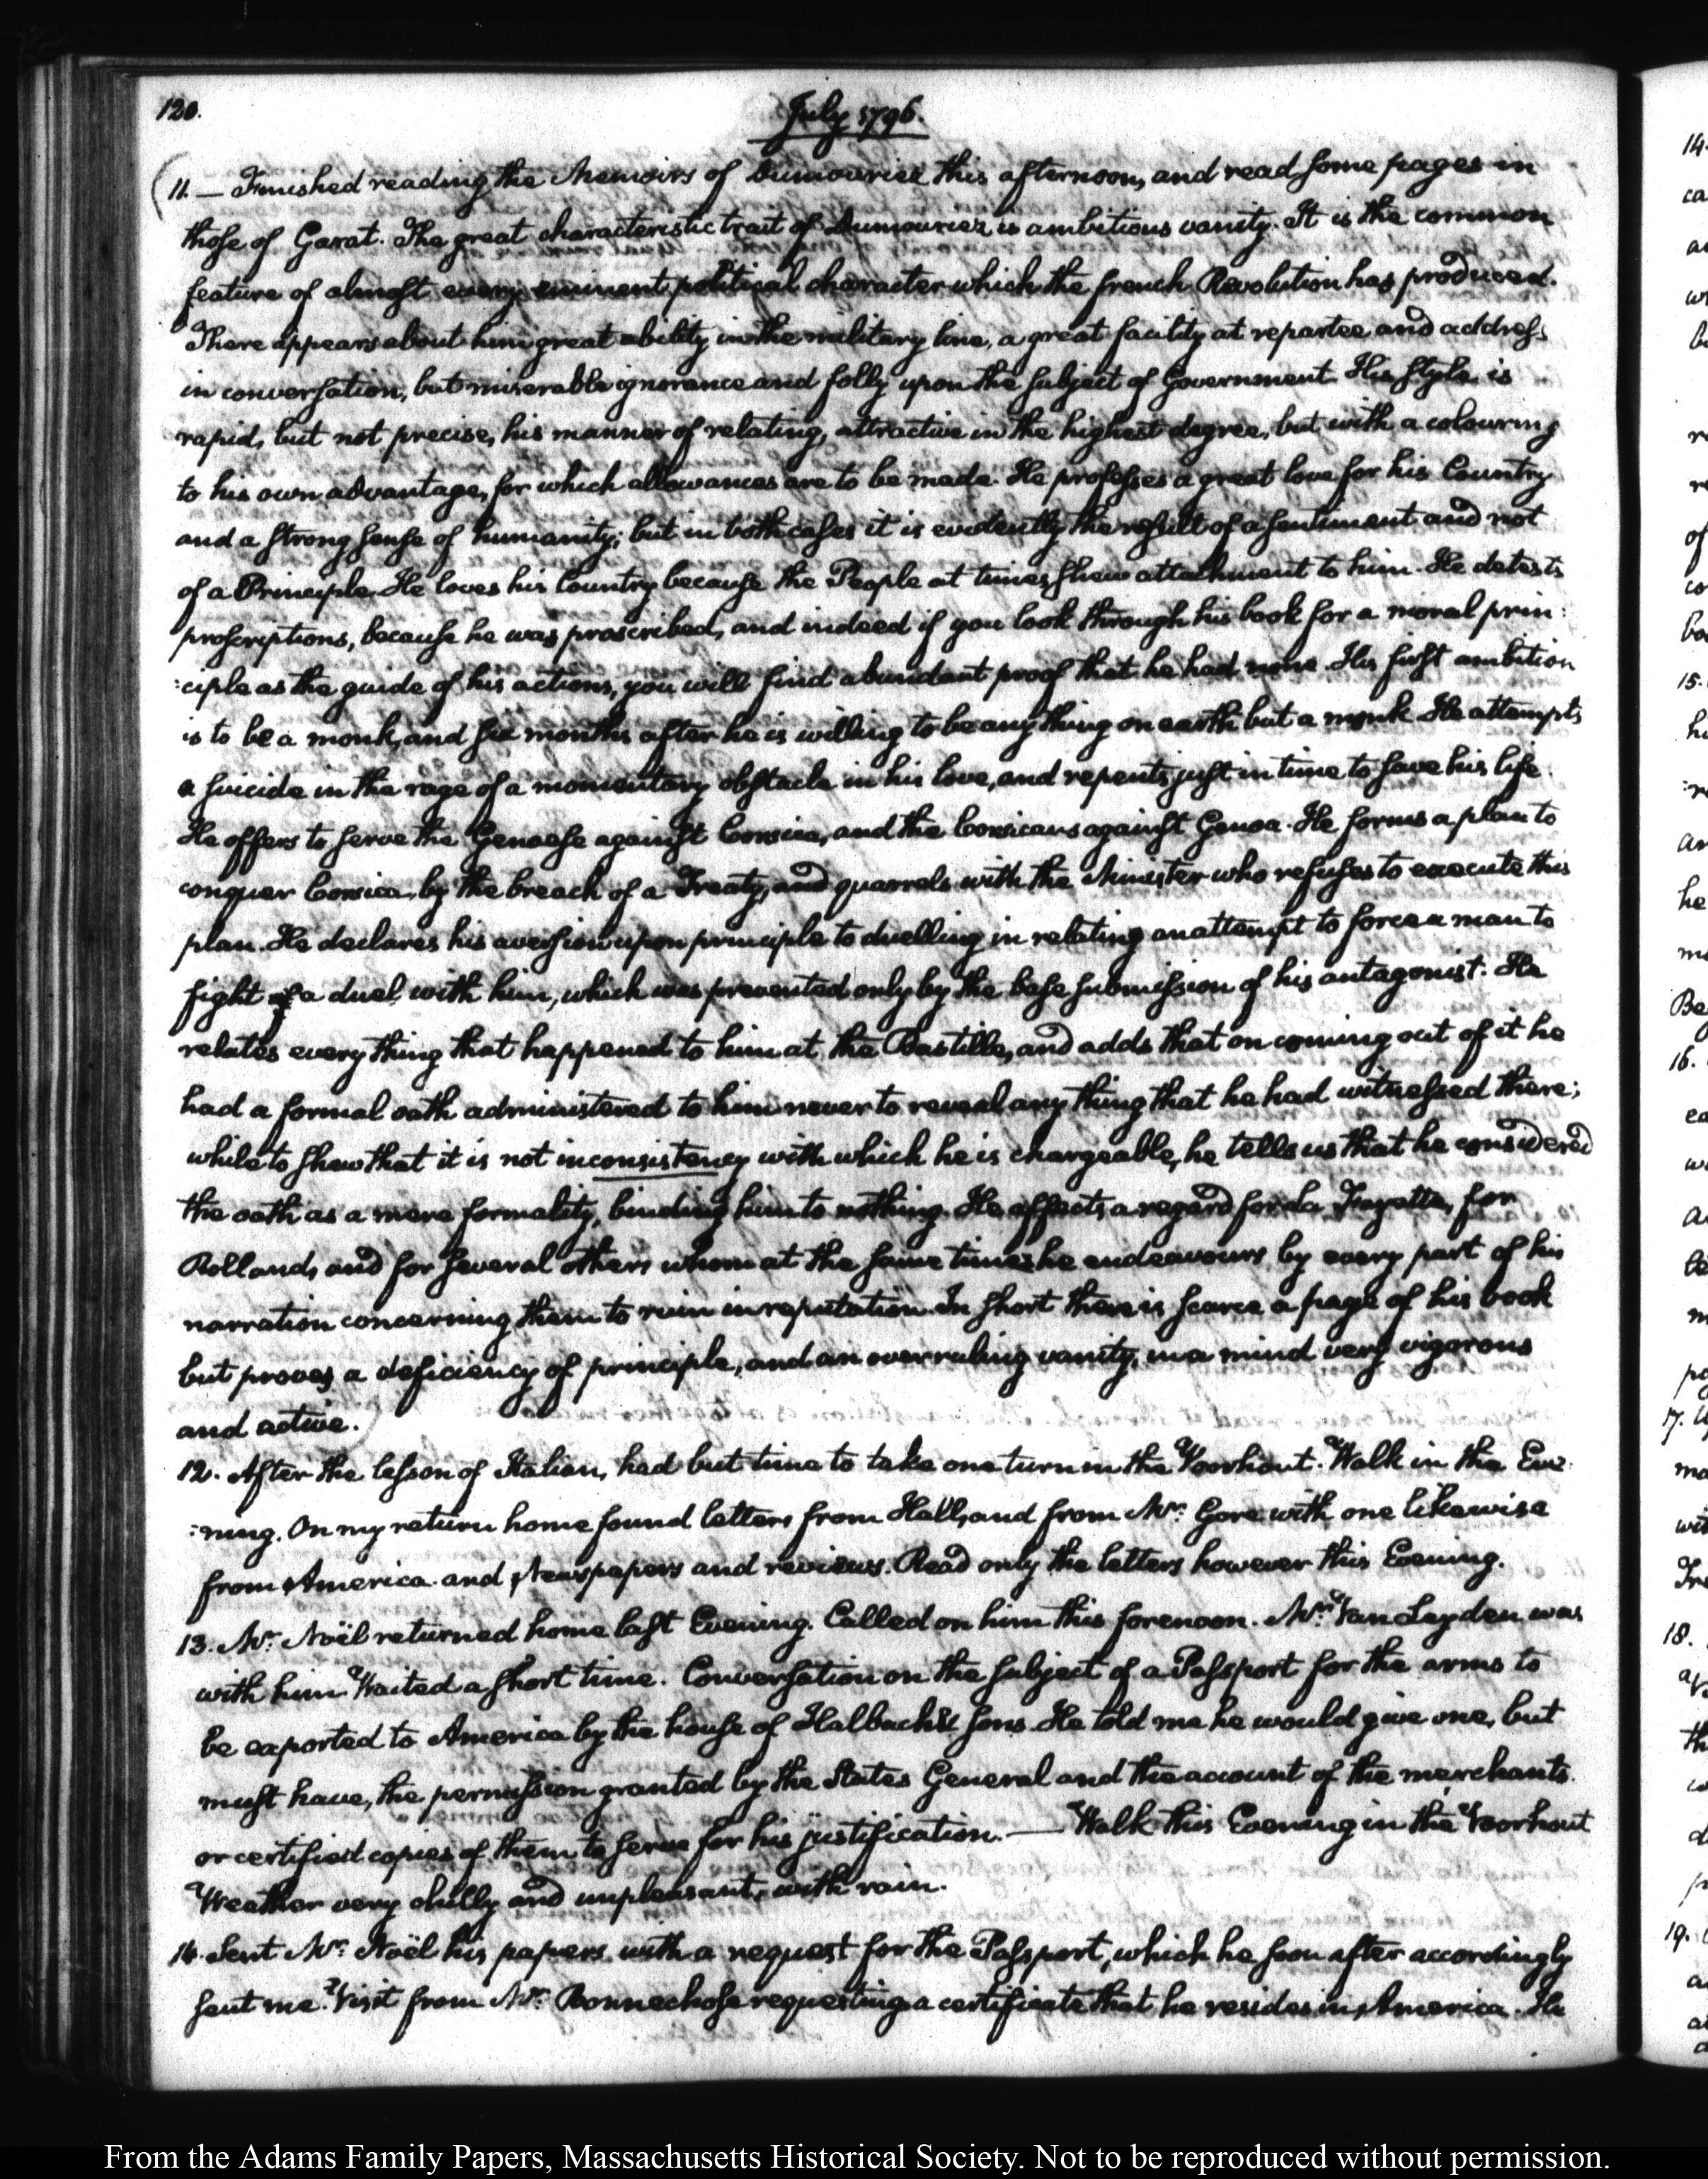 120.
July 1796.
11. — Finished reading the Memoirs of Dumouriez this afternoon, and read some pages in
those of Garat. The great characteristic trait of Dumouriez is ambitious vanity. It is the common
feature of almost every eminent political character which the french Revolution has produced.
There appears about him great ability in the military line, a great facility at repartee and address
in conversation, but miserable ignorance and folly upon the subject of Government. His style is
rapid, but not precise, his manner of relating, attractive in the highest degree, but with a colouring
to his own advantage, for which allowances are to be made. He professes a great love for his Country
and a strong sense of humanity; but in both cases it is evidently the result of a sentiment and not
of a Principle. He loves his Country because the People at times shew attachment to him. He detests
proscriptions, because he was proscribed, and indeed if you look through his book for a moral prin:
:ciple as the guide of his actions, you will find abundant proof that he had none. His first ambition
is to be a monk, and six months after he is willing to be any thing on earth but a monk. He attempts
a suicide in the rage of a momentary obstacle in his love, and repents just in time to save his life.
He offers to serve the Genoese against Corsica, and the Corsicans against Genoa. He forms a plan to
conquer Corsica by the breach of a Treaty, and quarrels with the Minister who refuses to execute this
plan. He declares his aversion upon principle to duelling in relating an attempt to force a man to
fight a duel with him, which was prevented only by the base submission of his antagonist. He
relates every thing that happened to him at the Bastille, and adds that on coming out of it he
had a formal oath administered to him never to reveal any thing that he had witnessed there;
while to shew that it is not inconsistency with which he is chargeable, he tells us that he considered
the oath as a mere formality, binding him to nothing. He affects a regard for La Fayette, for
Rolland, and for several others whom at the same time he endeavours by every part of his
narration concerning them to ruin in reputation. In short there is scarce a page of his book
but proves a deficiency of principle, and an overruling vanity, in a mind very vigorous
and active.
12. After the lesson of Italian, had but time to take one turn in the Voorhout. Walk in the Eve:
:ning. On my return home found letters from Hall, and from Mr: Gore with one likewise
from America and Newspapers and reviews. Read only the letters however this Evening.
13. Mr: Noël returned home last Evening. Called on him this forenoon. Mr: Van Leyden was
with him. Waited a short time. Conversation on the subject of a Passport for the arms to
be exported to America by the house of Halbach & sons. He told me he would give one, but
must have, the permission granted by the States General and the account of the merchants.
or certified copies of them to serve for his justification. — Walk this Evening in the Voorhout
Weather very chilly and unpleasant, with rain.
14. Sent Mr: Noël his papers with a request for the Passport, which he soon after accordingly
sent me. Visit from Mr: Bonnechose requesting a certificate that he resides in America. He
From the Adams Family Papers, Massachusetts Historical Society. Not to be reproduced without permission.